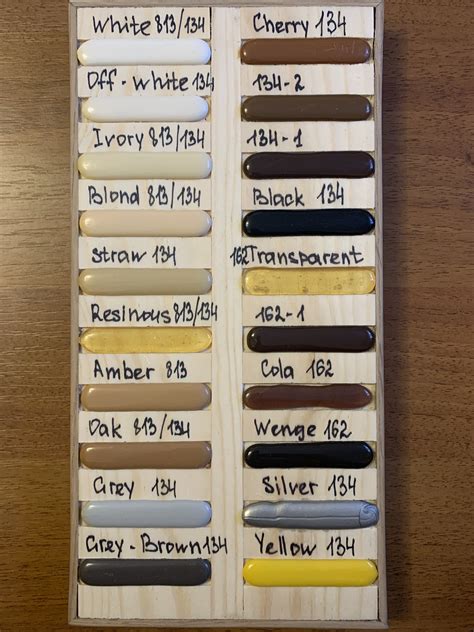 White 813/134
Off-white 134
Ivory 813/134
Blond 813/134
straw 134
Resinous 813/134
Amber 813
Oak 813/134
Grey 134
Grey-Brown 134
Cherry 134
134-2
134-1
Black 134
162 Transparent
162-1
Cola 162
Wenge 162
Silver 134
Yellow 134